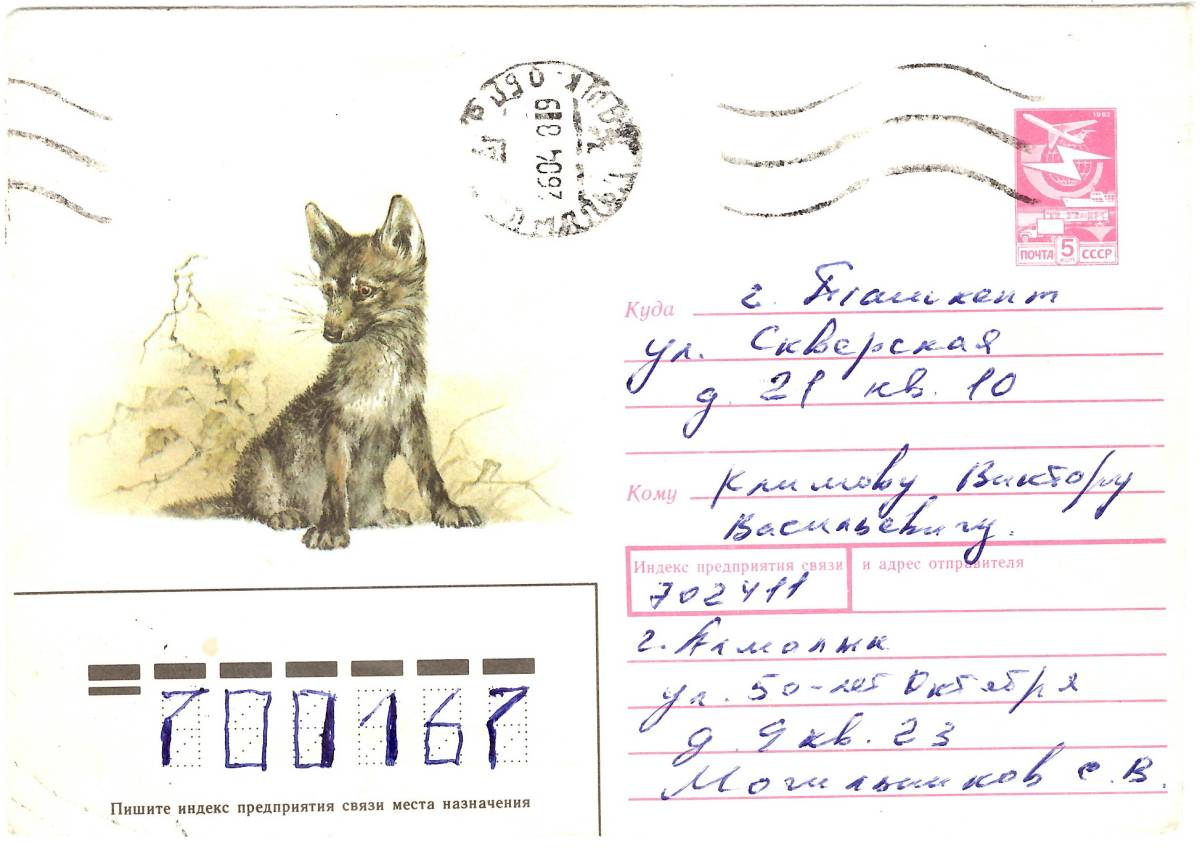 1983
ПОЧТА 5 коп СССР
Куда г. Ташкент
ул. Скверская
д. 21 кв. 10
Кому Климову Виктору
Васильевичу.
Индекс предприятия связи и адрес отправителя
702411
г. Алмалык
ул. 50-лет Октября
д. 9 кв. 23
Могильников С. В.
700167
Пишите индекс предприятия связи места назначения